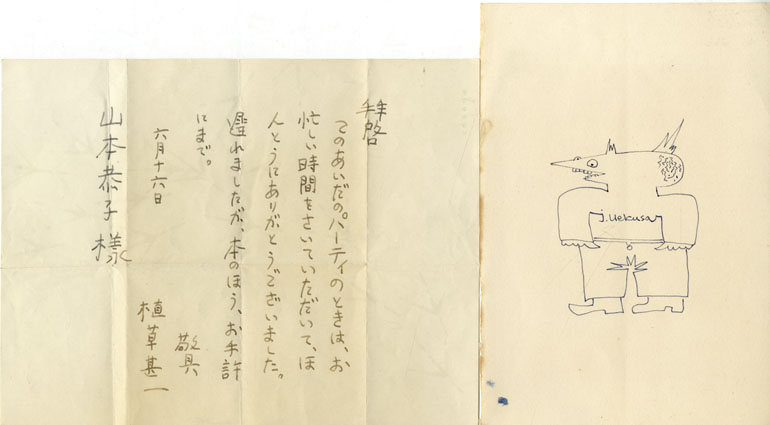 拝啓
このあいだのパーティのときは、お
忙しい時間をさいていただいて、ほ
んとうにありがとうございました。
遅れましたが、本のほう、お手許
にまで。
敬具
六月十六日
植草甚一
山本恭子様
j. uekusa